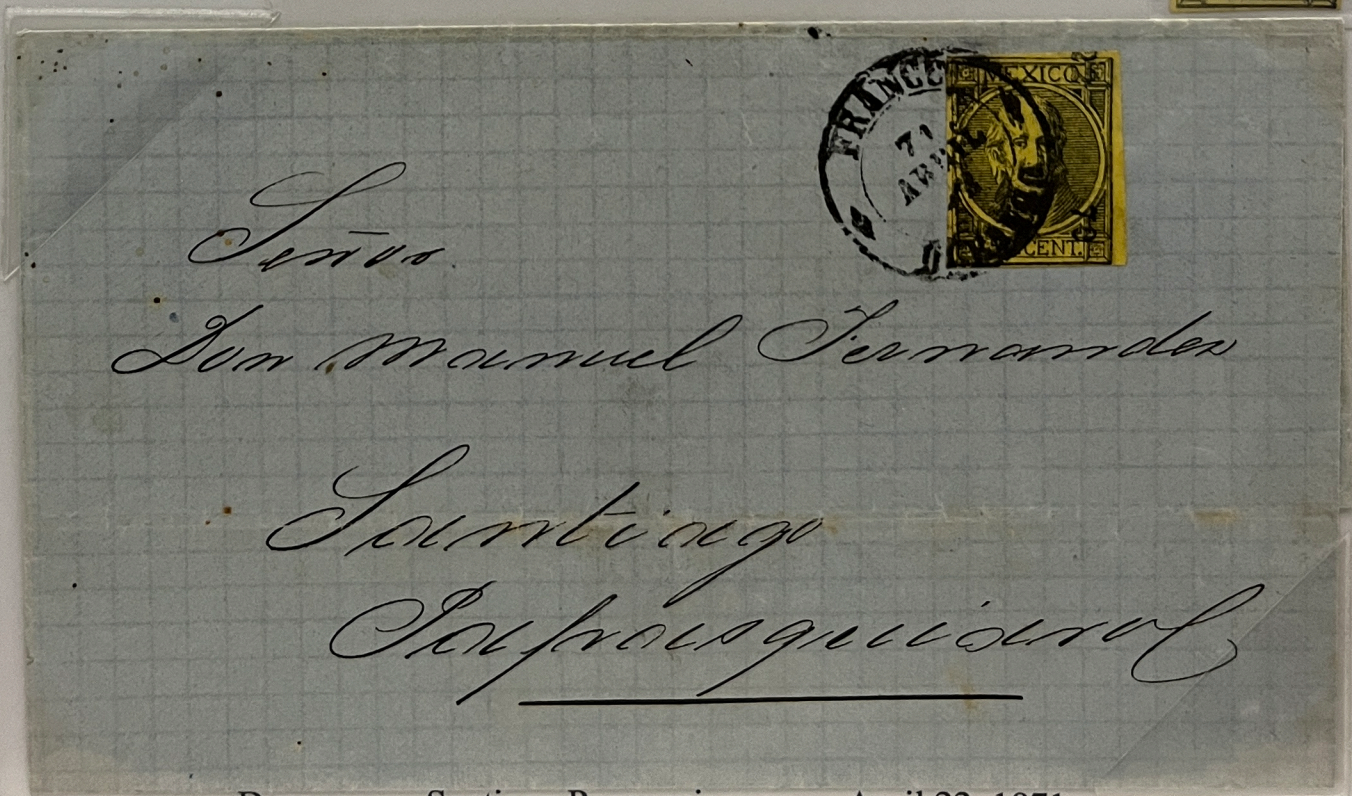 FRANCO
71
ABRIL
MEXICO
CENT.
Señor
Don Manuel Fernandez
Santiago
Papasquiaro
April 22, 1871